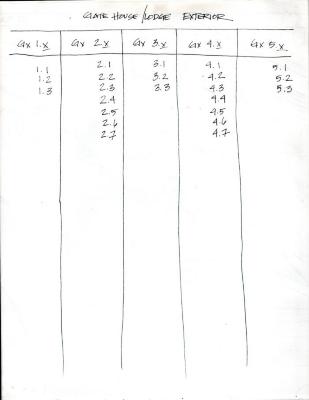 GATE HOUSE/LODGE EXTERIOR
GX 1.X GX 2.X GX 3.X GX 4.X GX 5.X
1.1 2.1 3.1 4.1 5.1
1.2 2.2 3.2 4.2 5.2
1.3 2.3 3.3 4.3 5.3
2.4 4.4
2.5 4.5
2.6 4.6
2.7 4.7